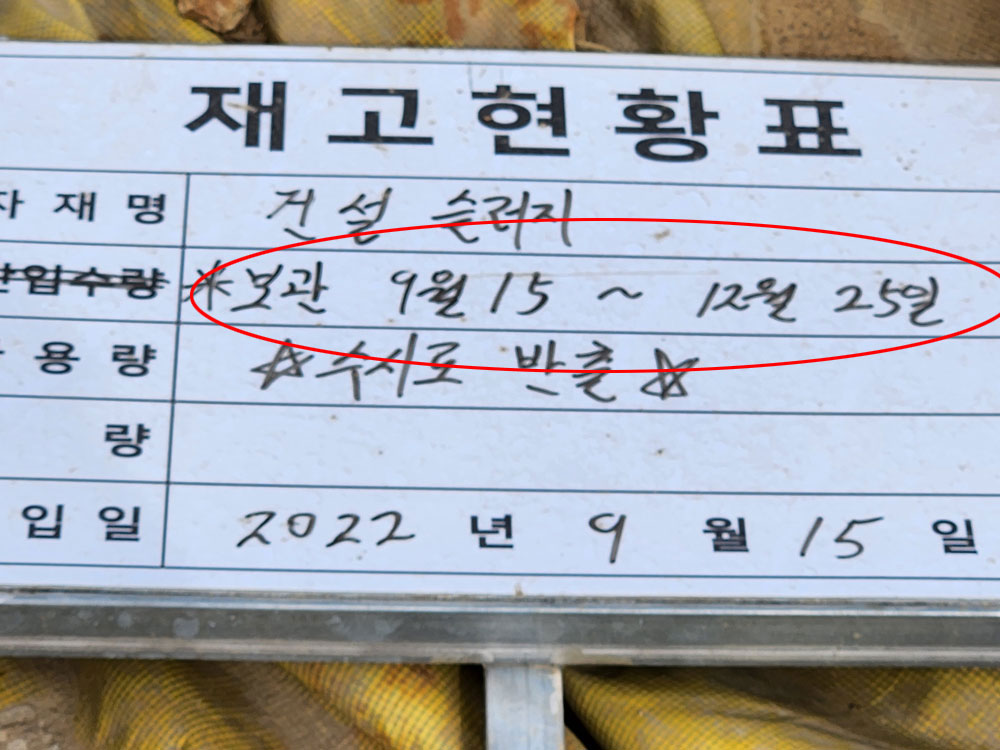 재고현황표
자재명 건설 슬러지
반입수량 *보관 9월 15 ~ 12월 25일
용량 ☆수시로 반출☆
량
입일 2022년 9월 15일